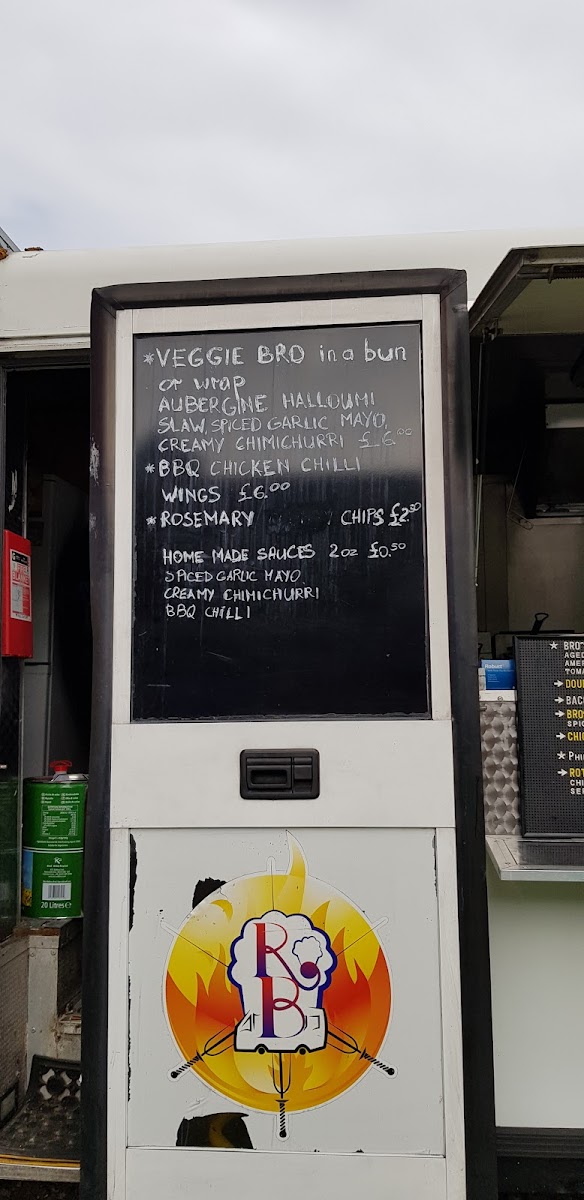 *VEGGIE BRO in a bun
or wrap
AUBERGINE HALLOUMI
SLAW, SPICED GARLIC MAYO,
CREAMY CHIMICHURRI £6.00
*BBQ CHICKEN CHILLI
WINGS £6.00
*ROSEMARY CHIPS £2.50
HOME MADE SAUCES 2oz £0.50
SPICED GARLIC MAYO
CREAMY CHIMICHURRI
BBQ CHILLI
20 Litres e
R
B
★ BRO
AGED
AME
TOMA
→ DOU
→ BAC
→ BRO
SPIC
→ CHI
★ PHI
→ ROT
CHI
SER